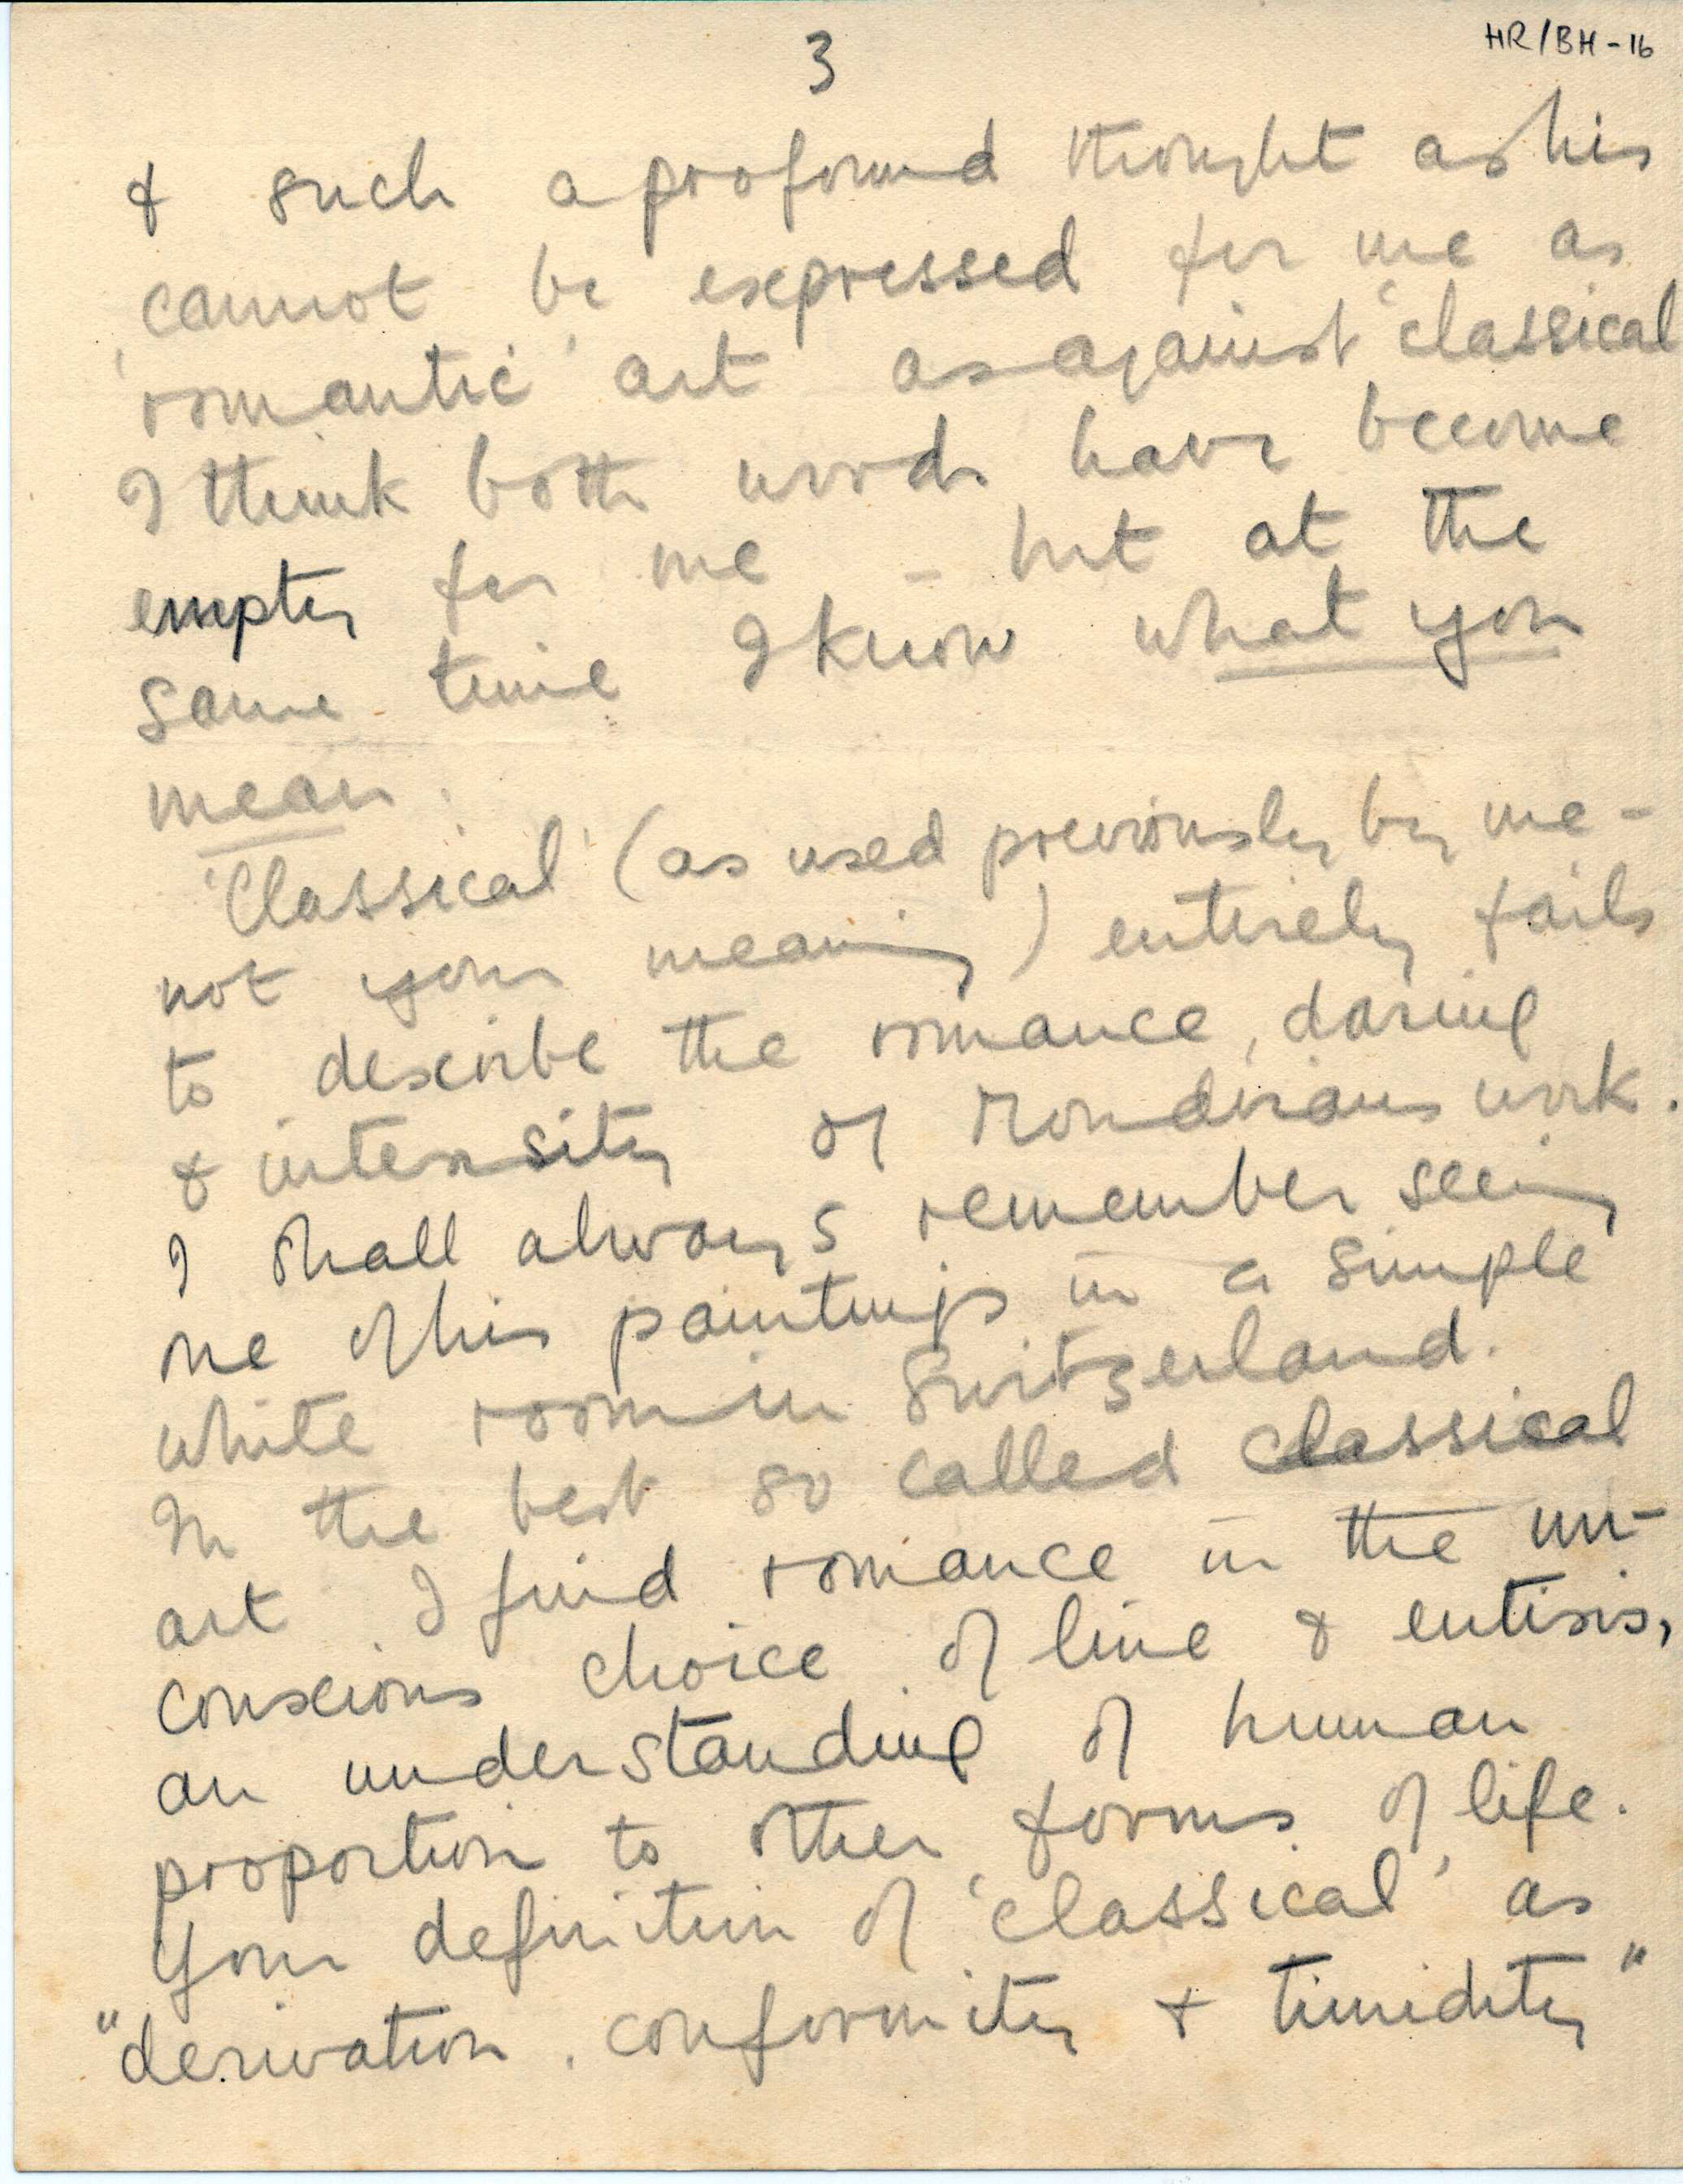 3
HR/BH-16
& such a profound thought as his
cannot be expressed for me as
'romantic' art as against 'classical
I think both words have become
empty for me – but at the
same time I know what you
mean.
'Classical' (as used previously by me –
not your meaning) entirely fails
to describe the romance, daring
& intensity of Mondrians work.
I shall always remember seeing
one of his paintings in a simple
white room in Switzerland.
In the best so called classical
art I find romance in the un-
conscious choice of line &
an understanding of human
proportion to other forms of life.
Your definition of 'classical' as
"derivation, conformity & timidity"